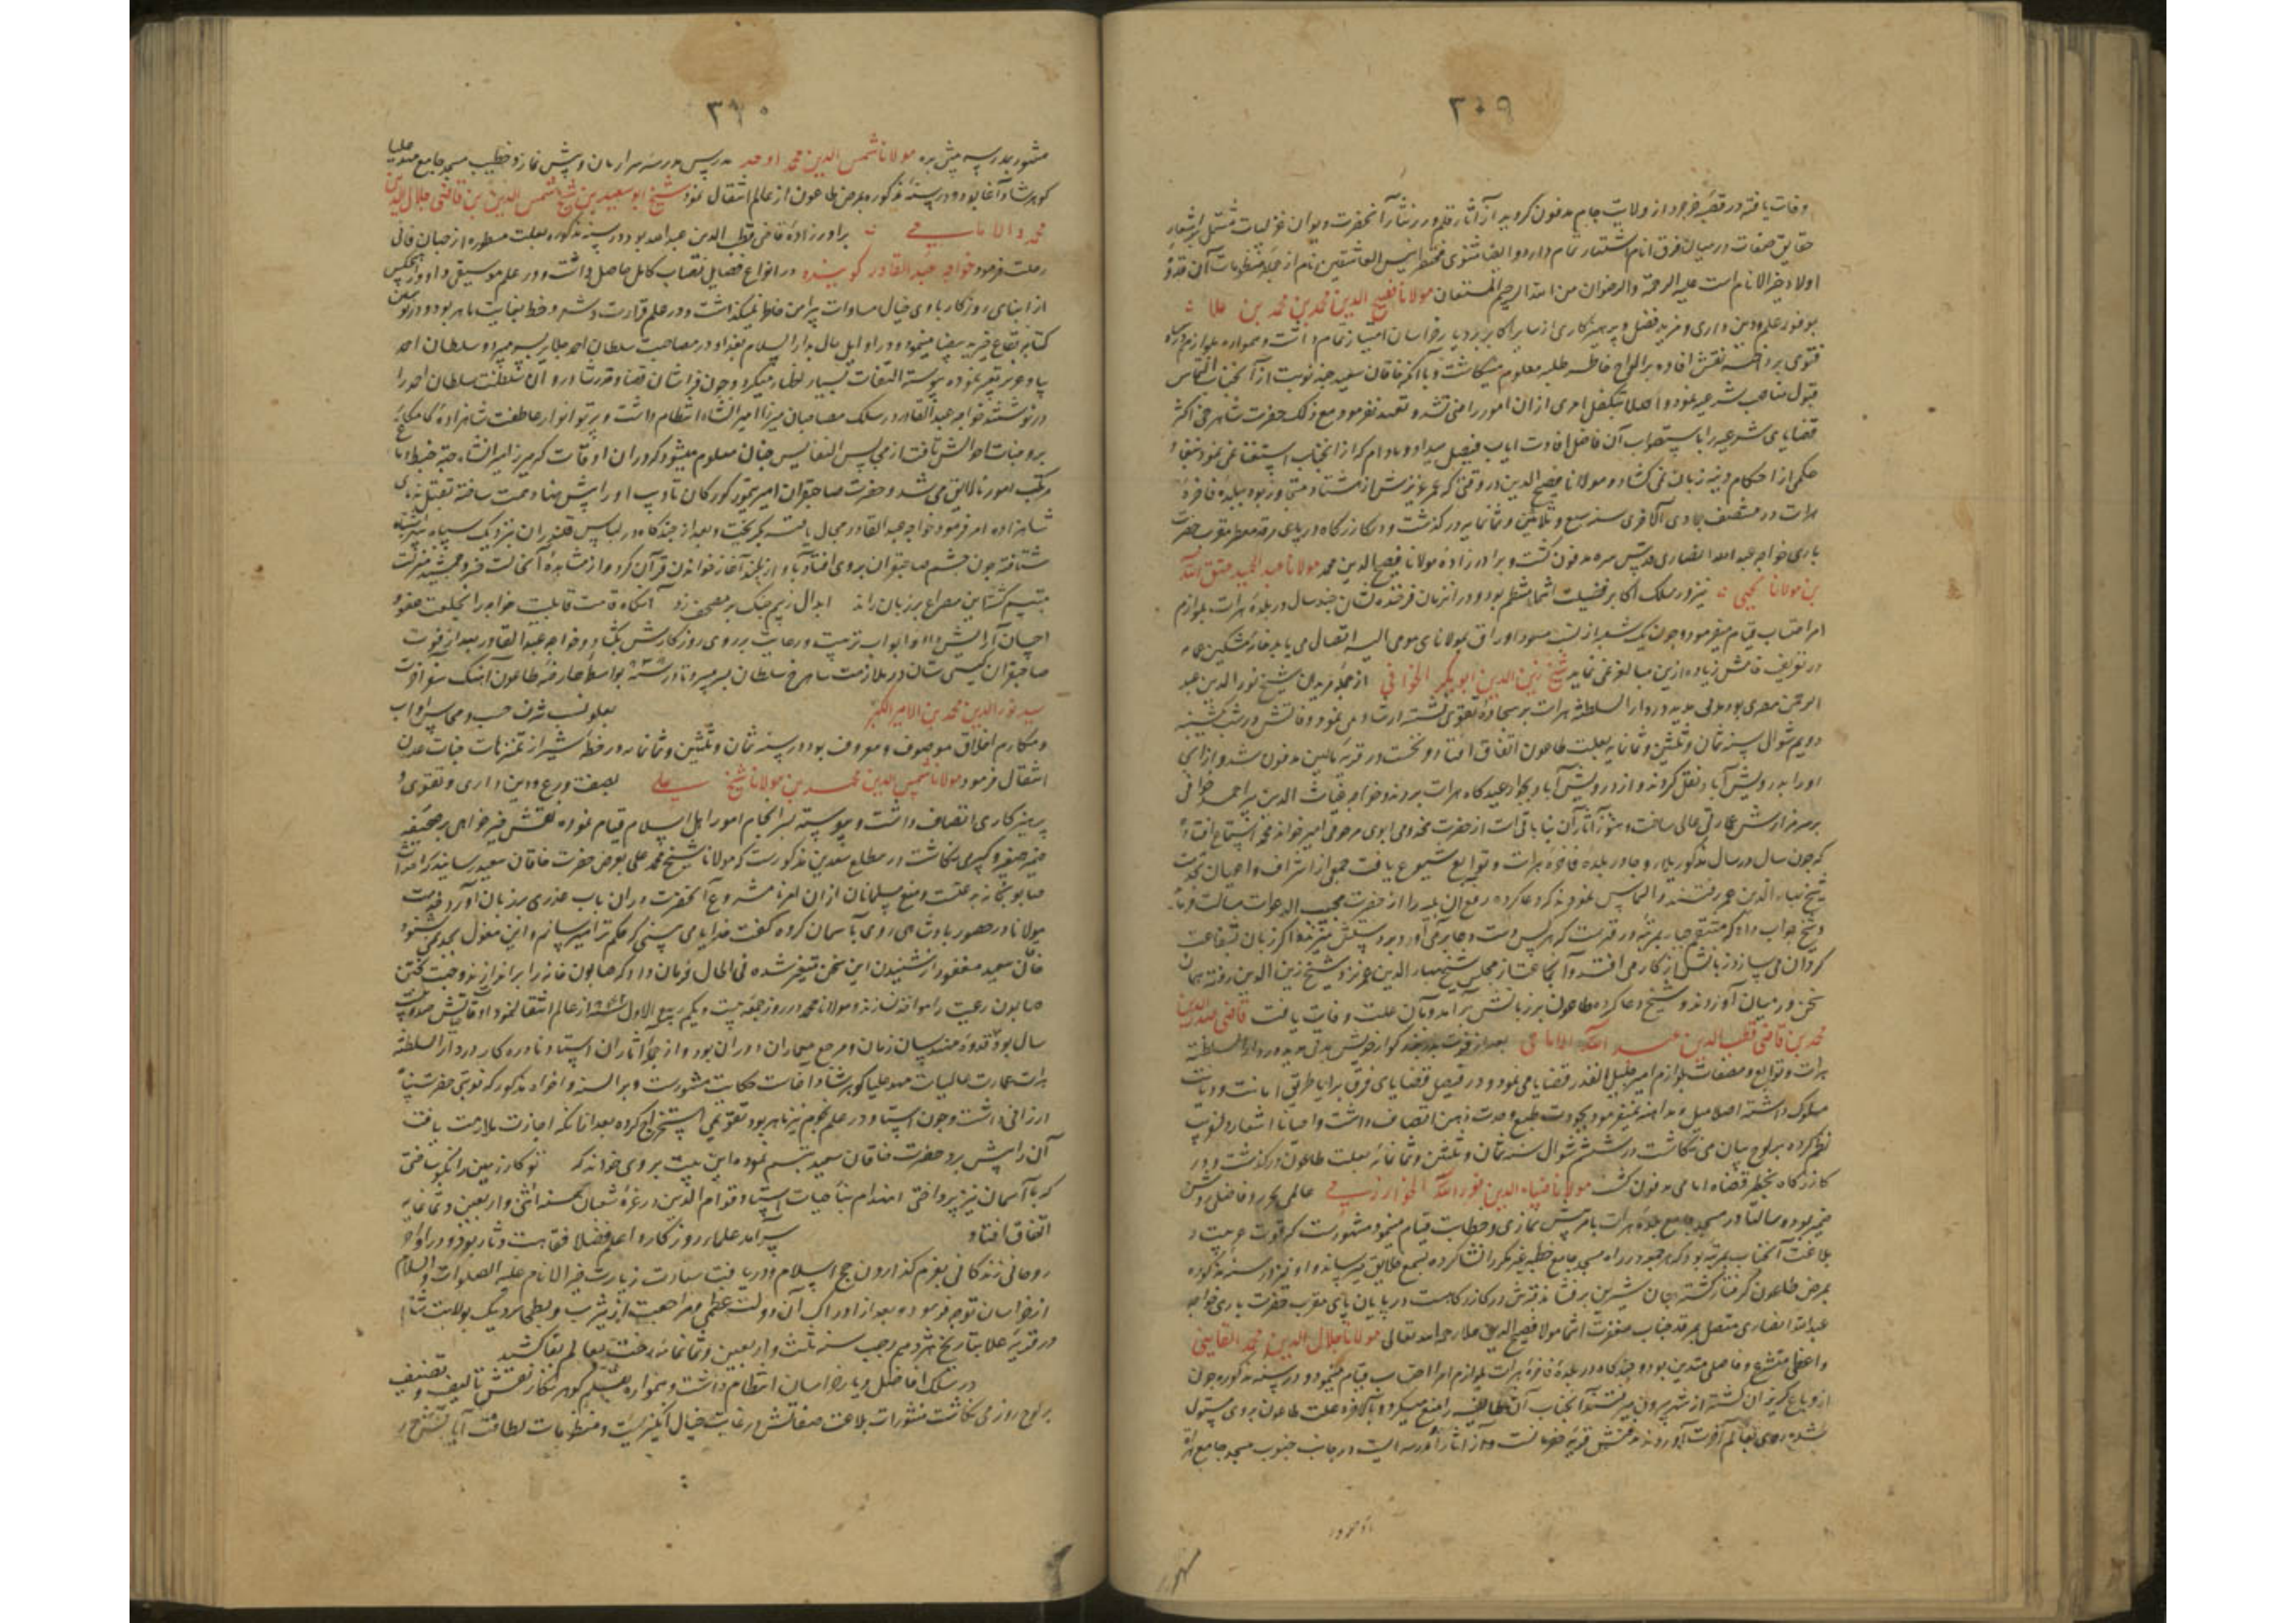 ۳۰۹
وفات یافته در قصبه خرجرد از ولایت جام مدفون کردید از آثار قلم درر نثار آنحضرت دیوان غزلیات مشتمل بر اشعار
حقایق صفات در میان فرق انام اشتهار تمام دارد و ایضا مثنوی مختصر انیس العاشقین نام از جمله منظومات آن قدوهٔ
اولاد خیر الانام است علیه الرحمة والرضوان من الله الرحیم المستعان مولانا فصیح الدین محمد بن محمد بن علا
بوفور علم و دین داری و مزید فضل و پرهیزکاری از سایر اکابر دیار خراسان امتیاز تمام داشت و همواره بلوازم
فتوی پرداخته نقش افاده بر الواح خاطر طلبه علوم مینکاشت و با آنکه خاقان سعید چند نوبت از آنجناب التماس
قبول مناصب شرعیه نمود و اصلا بتکفل امری ازان امور راضی نشد و تعهد نفرمود مع ذلک حضرت شاهرخی اکثر
قضایای شرعیه را باستصواب آن فاضل افادت ایاب فیصل میداد و مادام که از آنجناب استفتا نمی نمود بنفاذ
حکمی از احکام دینیه زبان نمی کشاد و مولانا فصیح الدین در وقتی که عمر عزیزش از هشتاد متجاوز بود ببلدهٔ فاخرهٔ
هرات در منتصف جمادی الآخری سنه سبع و ثلاثین و ثمانمایه درکذشت و در کازرکاه در پای مرقد معطر مقرب حضرت
باری خواجه عبد الله انصاری قدس سره مدفون کشت و برادرزادهٔ مولانا فصیح الدین محمد مولانا عبد الحمید عتیق الله
بن مولانا یحیی نیز در سلک اکابر فضیلت انتما منتظم بود و در زمان فرخنده نشان چند سال در بلدهٔ هرات بلوازم
امر احتساب قیام میفرمود و چون یک شعبه از نسب مسود اوراق بمولانای مومی الیه اتصال می یابد خامهٔ مشکین عمامه
در تعریف ذاتش زیاده ازین مبالغه نمی نماید شیخ زین الدین ابو بکر الخوافی از جمله مریدان شیخ نور الدین عبد
الرحمن مصری بود مدتی مدید در دار السلطنه هرات بر سجادهٔ تقوی نشسته ارشاد می نمود وفاتش در شب یکشنبه
دویم شوال سنه ثمان و ثلثین و ثمانمایه بعلت طاعون اتفاق افتاد و نخست در قریهٔ مالین مدفون شد و از انجا
اورا بدرویش آباد نقل کردند و از درویش آباد بجوار عیدکاه هرات بردند و خواجه غیاث الدین پیر احمد خوافی
بر سر مزارش عمارتی عالی ساخت و هنوز آثار آن بنا باقی است از حضرت مخدومی ابوی مرحومی امیر خواند محمد استماع افتاد
که چون سال در سال مذکور بلاء وبا در بلدهٔ فاخرهٔ هرات و توابع شیوع یافت جمعی از اشراف و اعیان بخدمت
شیخ بهاء الدین عمر رفتند و التماس نمودند که دعا کرده رفع ان بلیه را از حضرت مجیب الدعوات مسالت نماید
و شیخ جواب داد که منتقم جبار بمرتبهٔ در قهرست که هر کس دست دعا برمی آورد بر دستش میزند اکر زبان بشفاعت
کردان می سازد زبانش از کار می افتد و آنجماعت از مجلس شیخ بهاء الدین عمر نزد شیخ زین الدین رفته همان
سخن در میان آوردند و شیخ دعا کرد طاعون بر زبانش برآمد و بآن علت وفات یافت قاضی صدر الدین
محمد بن قاضی قطب الدین عبد الله الامامی بعد از فوت پدر بزرکوار خویش مدتی مدید در دار السلطنه
هرات و توابع و مضافات بلوازم امیر جلیل القدر قضا می نمود و در فیصل قضایای فرق برایا طریق امانت و دیانت
مسلوک داشته اصلا میل و مداهنه نمیفرمود بجودت طبع و حدت ذهن اتصاف داشت و احیانا اشعار دلفریب
نظم کرده بر لوح بیان می نکاشت در ششم شوال سنه ثمان و ثلثین و ثمانمائه بعلت طاعون درکذشت و در
کازرکاه بحظیرهٔ قضاة امامی مدفون کشت مولانا ضیاء الدین نور الله الخوارزمی عالمی نحریر و فاضلی روشن
ضمیر بود و سالها در مسجد جامع بلدهٔ هرات بامر پیش نمازی و خطابت قیام مینمود مشهورست که قوت طبیعت و
بلاغت آنجناب بمرتبهٔ بود که هر جمعه در راه مسجد جامع خطبهٔ غیر مکرر انشا کرده بسمع خلایق میرسانید و او نیز در سنه مذکوره
بمرض طاعون کرفتار کشته جان شیرین برفشاند قبرش در کازرکاهست در پایان پای مقرب حضرت باری خواجه
عبد الله انصاری متصل بمرقد جناب صفوت انتما مولانا فصیح الدین علا رحمه الله تعالی مولانا جلال الدین محمد القاینی
واعظی متشرع و فاضلی متدین بود و چندکاه در بلدهٔ فاخرهٔ هرات بلوازم امر احتساب قیام مینمود و در سنه مذکوره چون
از وباء کریزان کشته از شهر بیرون میرفتند آنجناب آن طایفه را منع میکرد و بالآخره علت طاعون بر وی مستولی
شده روی بعالم آخرت آورد مدفنش قریهٔ خیرانست و از آثار او مدرسه ایست در جانب جنوب مسجد جامع هراة
۳۱۰
مشهور بمدرسهٔ پیش بره مولانا شمس الدین محمد اوحد بدریس مدرسهٔ سر اربان و پیش نماز و خطیب مسجد جامع مهد علیا
کوهرشاد آغا بود و در سنهٔ مذکوره بمرض طاعون از عالم انتقال نمود شیخ ابو سعید بن شیخ شمس الدین بن قاضی جلال الدین
محمود الامامی برادرزادهٔ قاضی قطب الدین عبد الله بود در سنه مذکوره بعلت مسطوره از جهان فانی
رحلت فرمود خواجه عبد القادر کوینده در انواع فضایل نصاب کامل حاصل داشت و در علم موسیقی و ادوار هیچکس
از ابنای روزکار با وی خیال مساوات پیرامن خاطر نمیکذاشت و در علم قراءت و شعر و خط بغایت ماهر بود و در نوشتن
کتابهٔ بقاع خیریه ید بیضا مینمود و در اوایل حال بدار السلام بغداد در مصاحبت سلطان احمد جلایر بسر میبرد و سلطان احمد
بیاد عزیز تعبیر نموده پیوسته التفات بسیار اظهار میکرد و چون فراشان قضا و قدر بساط دولت سلطان احمد را
درنوشتند خواجه عبد القادر در سلک مصاحبان میرزا امیرانشاه انتظام داشت و پرتو انوار عاطفت شاهزادهٔ کامکار
بر وجنات احوالش تافت از مجالس النفایس چنان معلوم میشود که دران اوقات که میرزا امیرانشاه بجهت خبط دماغ
مرتکب امور نالایق می شد و حضرت صاحبقران امیر تیمور کورکان تادیب او را پیش نهاد همت ساخته بقتل ندمای
شاهزاده امر فرمود خواجه عبد القادر مجال یافته بکریخت و بعد از چندکاه در لباس قلندران بنزدیک سپاه
شتافته چون چشم صاحبقران بر وی افتاد بآواز بلند آغاز خواندن قرآن کرد و از مشاهدهٔ آنحالت خسرو جمشید منزلت
متبسم کشتا این مصراع بر زبان راند ابدال ز بیم چنک بر مصحف زد آنکاه قامت قابلیت خواجه را بخلعت عفو و
احسان آرایش داد و ابواب تربیت و رعایت بر روی روزکارش بکشاد و خواجه عبد القادر بعد از فوت
صاحبقران کیتی ستان در ملازمت شاهرخ سلطان بسر میبرد تا در سنه ۸۳۸ بواسطهٔ عارضهٔ طاعون آهنک سفر آخرت
سید نور الدین محمد بن الامیر الکبیر بعلو نسب شرف حسب و محاسن آداب
و مکارم اخلاق موصوف و معروف بود در سنه ثمان و ثلثین و ثمانمایه در خطهٔ شیراز بمتنزهات جنات عدن
انتقال فرمود مولانا شمس الدین محمد بن مولانا شیخ علی بصفت ورع و دین داری و تقوی و
پرهیزکاری اتصاف داشت و پیوسته بسرانجام امور اهل اسلام قیام نموده نقش خیرخواهی بر صحیفهٔ
ضمیر صغیر و کبیری نکاشت در مطلع سعدین مذکورست که مولانا شیخ محمد علی بعرض حضرت خاقان سعید رسانید که احداث
صابونخانه بدعتست و منع مسلمانان ازان امر نامشروع آنحضرت دران باب عذری بزبان آورد خدمت
مولانا در حضور پادشاهی روی بآسمان کرده کفت خدایا می بینی که حکم ترا میرسانم و این مغول بچه نمی شنود
خاقان سعید مغفور از شنیدن این سخن متغیر شده فی الحال فرمان داد که صابون خانه را براندازند و بجهت پختن
صابون رعیت را مواخذه نسازند و مولانا محمد در روز جمعه بیست و یکم ربیع الاول از عالم انتقال نمود اوقاتش صد و بیست
سال بود قدوهٔ مهندسان زمان و مرجع معماران دوران بود و از جمله آثار ان استاد نادره کار در دار السلطنه
هرات عمارت عالیات مهد علیا کوهرشاد آغاست حکایت مشهورست و بر السنه و افواه مذکور که نوبتی حضرت
ارزانی داشت و چون استاد در علم نجوم نیز ماهر بود تقویمی استخراج کرده بعد ازانکه اجازت ملازمت یافت
آن را پیش برد حضرت خاقان سعید تبسم نموده این بیت بر وی خواند که تو کار زمین را نکو ساختی
که با آسمان نیز پرداختی انهدام بنا حیات استاد قوام الدین در غرهٔ شعبان سنه اثنی و اربعین و ثمانمایه
اتفاق افتاد سرآمد علماء روزکار و اعلم فضلا فقاهت دثار بود و در اواخر
روحانی زندکانی بعزم کذاردن حج اسلام و دریافت سعادت زیارت خیر الانام علیه الصلوات والسلام
از خراسان توجه فرمود و بعد از ادراک آن دولت عظمی و مراجعت از یثرب و بطحی نزدیک بولایت شام
در قریهٔ علا بتاریخ هژدهم رجب سنه ثلث و اربعین و ثمانمائه رخت بعالم بقا کشید
در سلک افاضل دیار خراسان انتظام داشت و همواره بقلم کوهر نکار نقش تالیف و تصنیف
بر لوح روز می نکاشت منثورات بلاغت صفاتش در غایت خیال انکیزیست و منظومات لطافت آیاتش